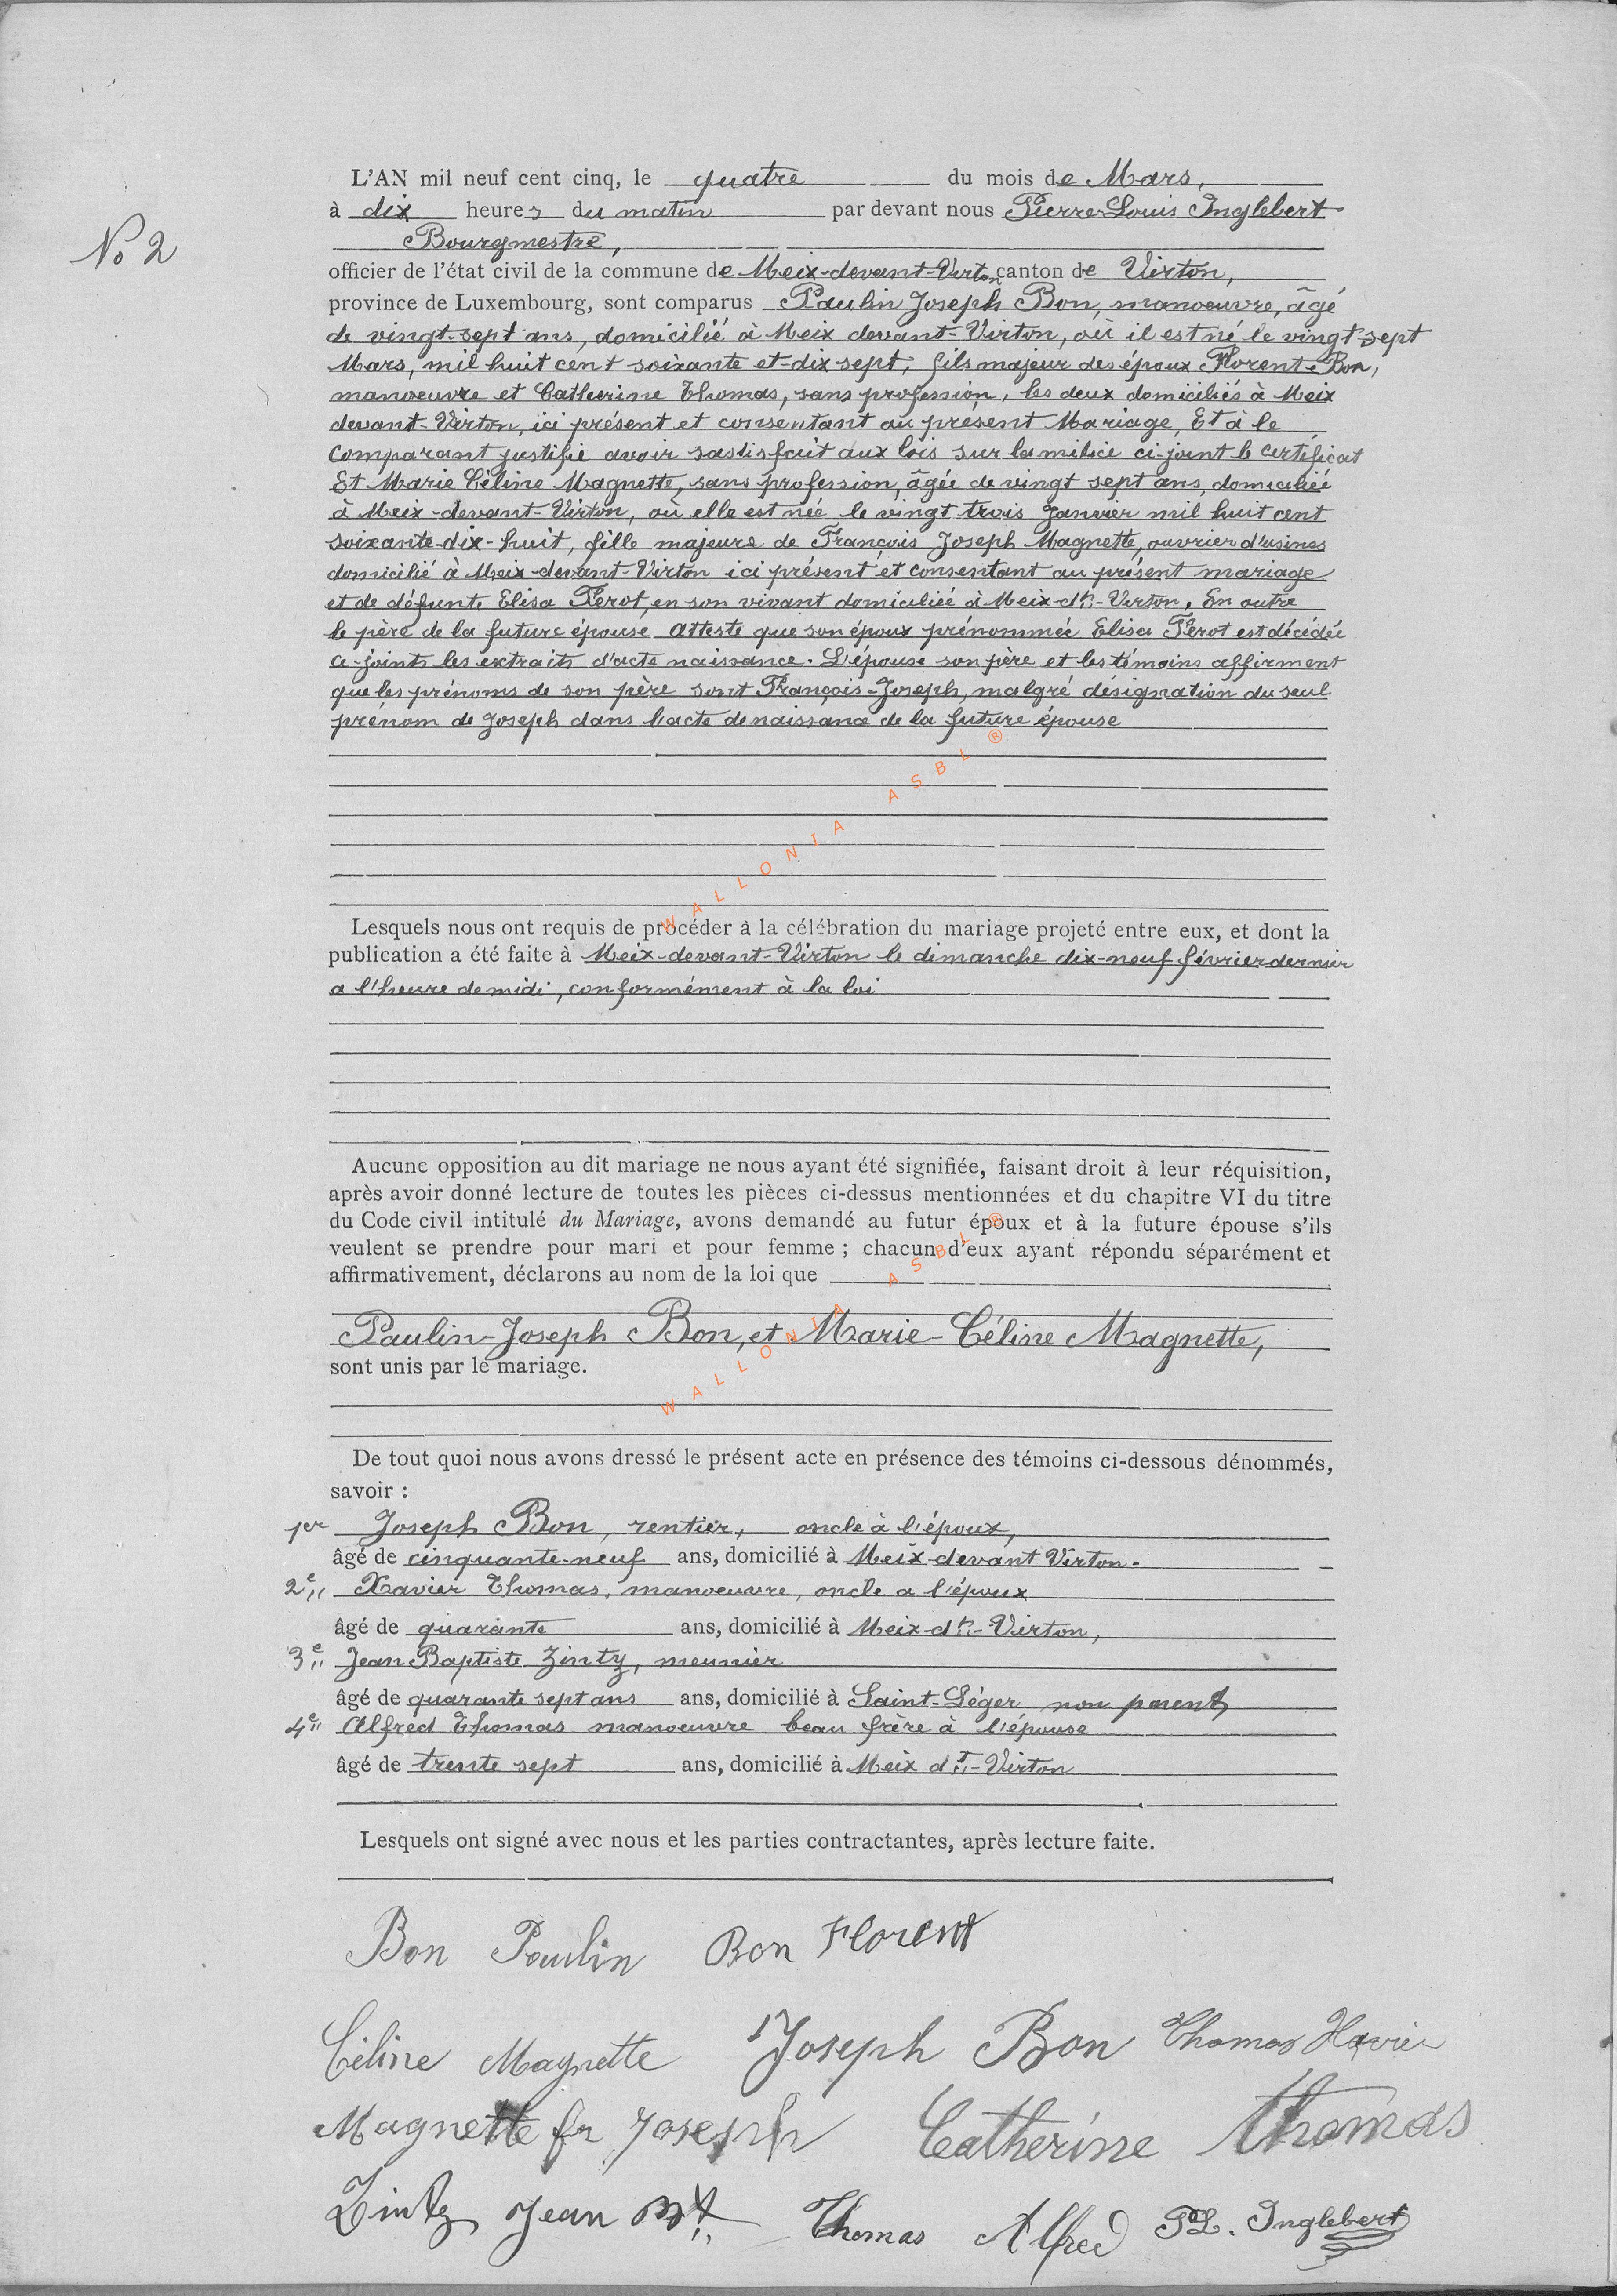 L'AN mil neuf cent cinq, le quatre du mois de Mars,
à dix heures du matin par devant nous Pierre Louis Inglebert
No 2
Bourgmestre,
officier de l'état civil de la commune de Meix-devant-Virton canton de Virton,
province de Luxembourg, sont comparus Paulin Joseph Bon, manoeuvre, âgé
de vingt-sept ans, domicilié à Meix devant-Virton, où il est né le vingt-sept
Mars, mil huit cent soixante et-dix sept, fils majeur des époux Florent Bon,
manoeuvre et Catherine Thomas, sans profession, les deux domiciliés à Meix
devant-Virton, ici présent et consentant au présent Mariage, Et à le
Comparant justifié avoir sastisfait aux lois sur la milice ci-joint le certificat
Et Marie Céline Magnette, sans profession, âgée de vingt sept ans, domiciliée
à Meix-devant-Virton, où elle est née le vingt trois Janvier mil huit cent
soixante-dix-huit, fille majeure de François Joseph Magnette, ouvrier d'usines
domicilié à Meix-devant-Virton ici présent et consentant au présent mariage
et de défunte Elisa Perot, en son vivant domiciliée à Meix-dt-Virton. En outre
le père de la future épouse atteste que son époux prénommée Elisa Perot est décédée
ci-joints les extraits d'acte naissance. L'épouse son père et les témoins affirment
que les prénoms de son père sont François-Joseph, malgré désignation du seul
prénom de Joseph dans l'acte de naissance de la future épouse
WALLONIA ASBL ®
Lesquels nous ont requis de procéder à la célébration du mariage projeté entre eux, et dont la
publication a été faite à Meix-devant-Virton le dimanche dix-neuf février dernier
a l'heure de midi, conformément à la loi
Aucune opposition au dit mariage ne nous ayant été signifiée, faisant droit à leur réquisition,
après avoir donné lecture de toutes les pièces ci-dessus mentionnées et du chapitre VI du titre
du Code civil intitulé du Mariage, avons demandé au futur époux et à la future épouse s'ils
veulent se prendre pour mari et pour femme ; chacun d'eux ayant répondu séparément et
affirmativement, déclarons au nom de la loi que
Paulin-Joseph Bon, et Marie-Céline Magnette,
sont unis par le mariage.
WALLONIA ASBL ®
De tout quoi nous avons dressé le présent acte en présence des témoins ci-dessous dénommés,
savoir :
1er Joseph Bon, rentier, oncle à l'époux,
âgé de cinquante-neuf ans, domicilié à Meix-devant Virton.
2e Xavier Thomas, manoeuvre, oncle a l'époux
âgé de quarante ans, domicilié à Meix-dt-Virton,
3e Jean Baptiste Zintz, meunier
âgé de quarante sept ans ans, domicilié à Saint-Léger non parent
4e Alfred Thomas manoeuvre beau frère à l'épouse
âgé de trente sept ans, domicilié à Meix dt-Virton
Lesquels ont signé avec nous et les parties contractantes, après lecture faite.
Bon Paulin Bon Florent
Céline Magnette Joseph Bon Thomas Xavier
Magnette fr Joseph Catherine Thomas
Zintz Jean Bt Thomas Alfred PL. Inglebert